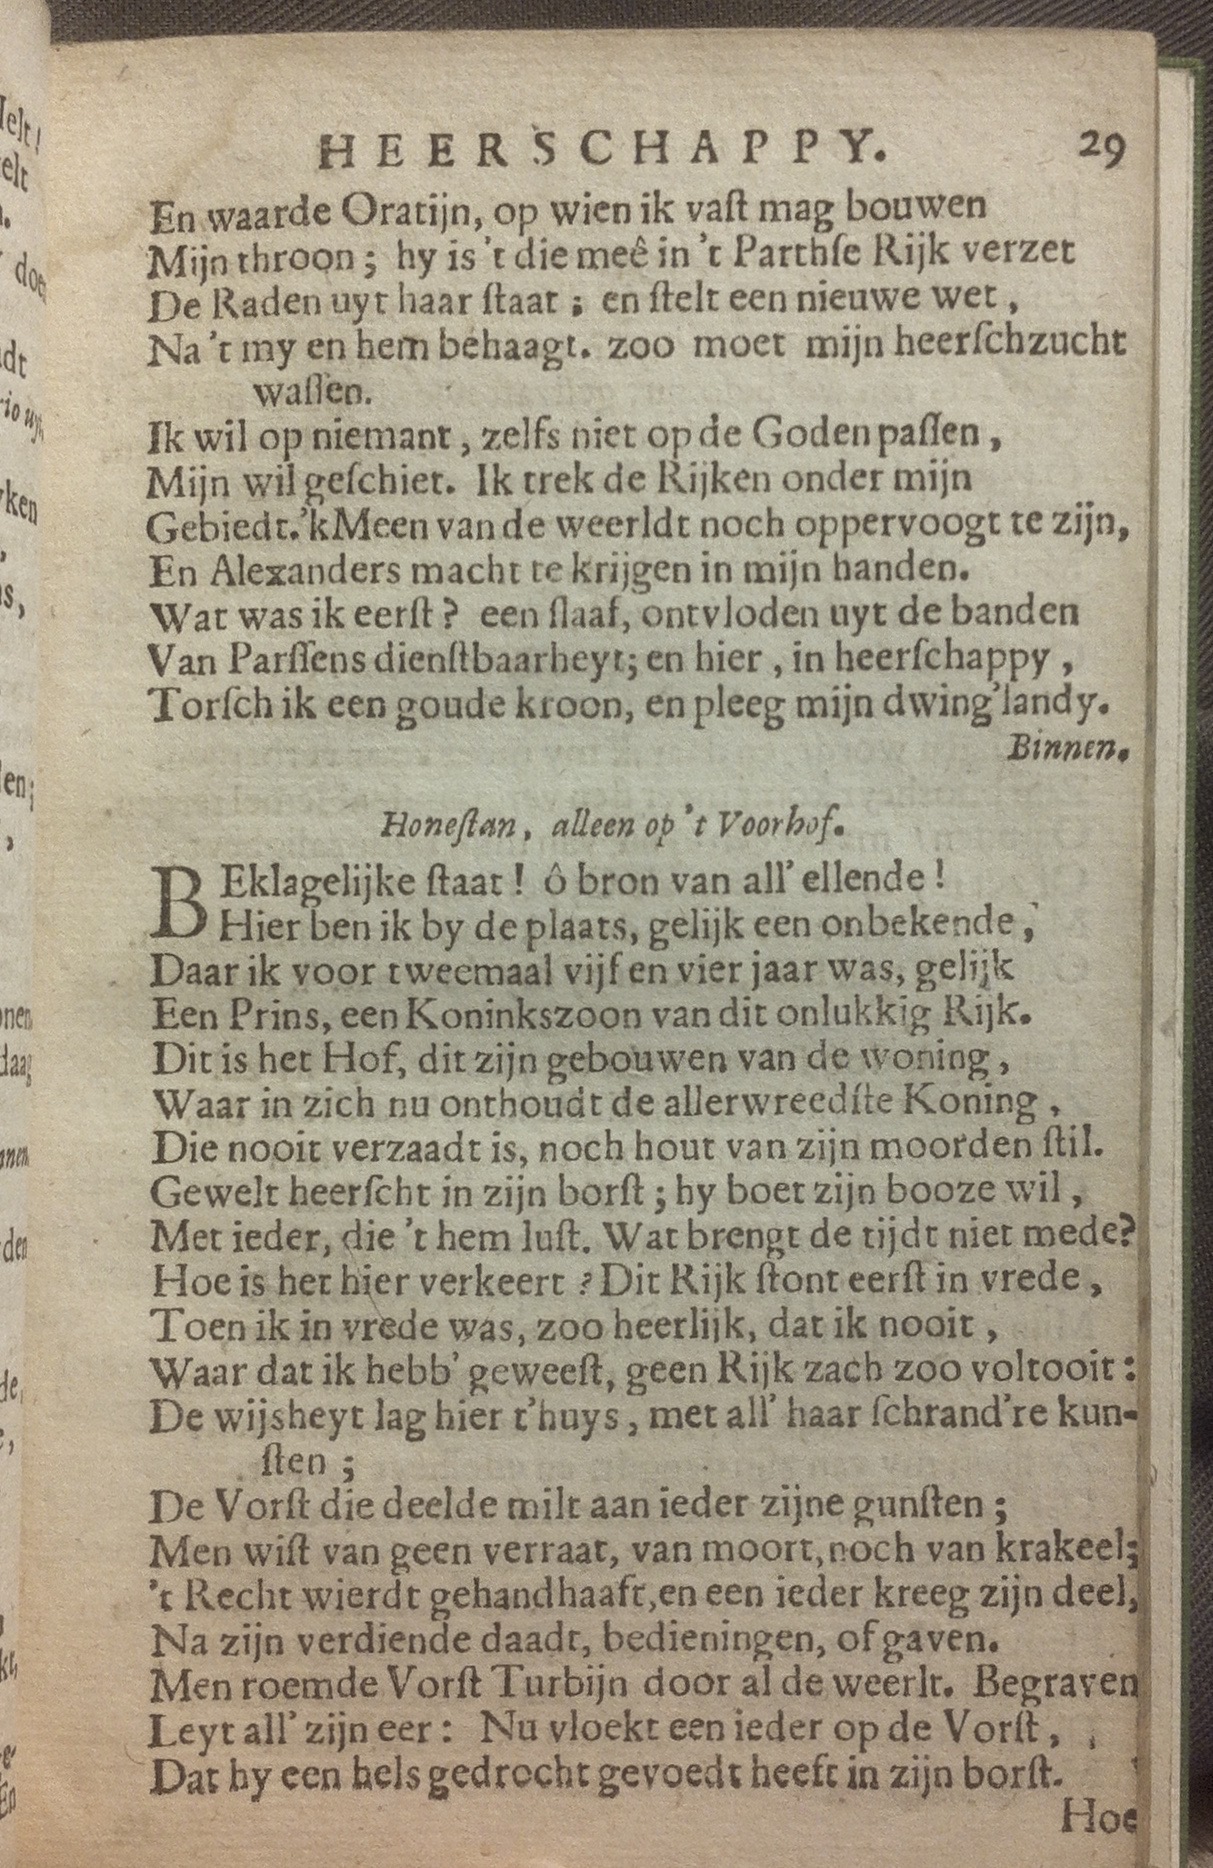 HEERSCHAPPY. 29
En waarde Oratijn, op wien ik vaſt mag bouwen
Mijn throon; hy is 't die meê in 't Parthſe Rijk verzet
De Raden uyt haar ſtaat; en ſtelt een nieuwe wet,
Na 't my en hem behaagt. zoo moet mijn heerſchzucht
waſſen.
Ik wil op niemant, zelfs niet op de Goden paſſen,
Mijn wil geſchiet. Ik trek de Rijken onder mijn
Gebiedt. 'k Meen van de weerldt noch oppervoogt te zijn,
En Alexanders macht te krijgen in mijn handen.
Wat was ik eerſt? een ſlaaf, ontvloden uyt de banden
Van Parſſens dienſtbaarheyt; en hier, in heerſchappy,
Torſch ik een goude kroon, en pleeg mijn dwing'landy.
Binnen.
Honeſtan, alleen op 't Voorhof.
BEklagelijke ſtaat! ô bron van all' ellende!
Hier ben ik by de plaats, gelijk een onbekende,
Daar ik voor tweemaal vijf en vier jaar was, gelijk
Een Prins, een Koninkszoon van dit onlukkig Rijk.
Dit is het Hof, dit zijn gebouwen van de woning,
Waar in zich nu onthoudt de allerwreedſte Koning,
Die nooit verzaadt is, noch hout van zijn moorden ſtil.
Gewelt heerſcht in zijn borſt; hy boet zijn booze wil,
Met ieder, die 't hem luſt. Wat brengt de tijdt niet mede?
Hoe is het hier verkeert? Dit Rijk ſtont eerſt in vrede,
Toen ik in vrede was, zoo heerlijk, dat ik nooit,
Waar dat ik hebb' geweeſt, geen Rijk zach zoo voltooit:
De wijsheyt lag hier t'huys, met all' haar ſchrand're kun-
ſten;
De Vorſt die deelde milt aan ieder zijne gunſten;
Men wiſt van geen verraat, van moort, noch van krakeel;
't Recht wierdt gehandhaaft, en een ieder kreeg zijn deel,
Na zijn verdiende daadt, bedieningen, of gaven.
Men roemde Vorſt Turbijn door al de weerlt. Begraven
Leyt all' zijn eer: Nu vloekt een ieder op de Vorſt,
Dat hy een hels gedrocht gevoedt heeft in zijn borſt.
Hoe